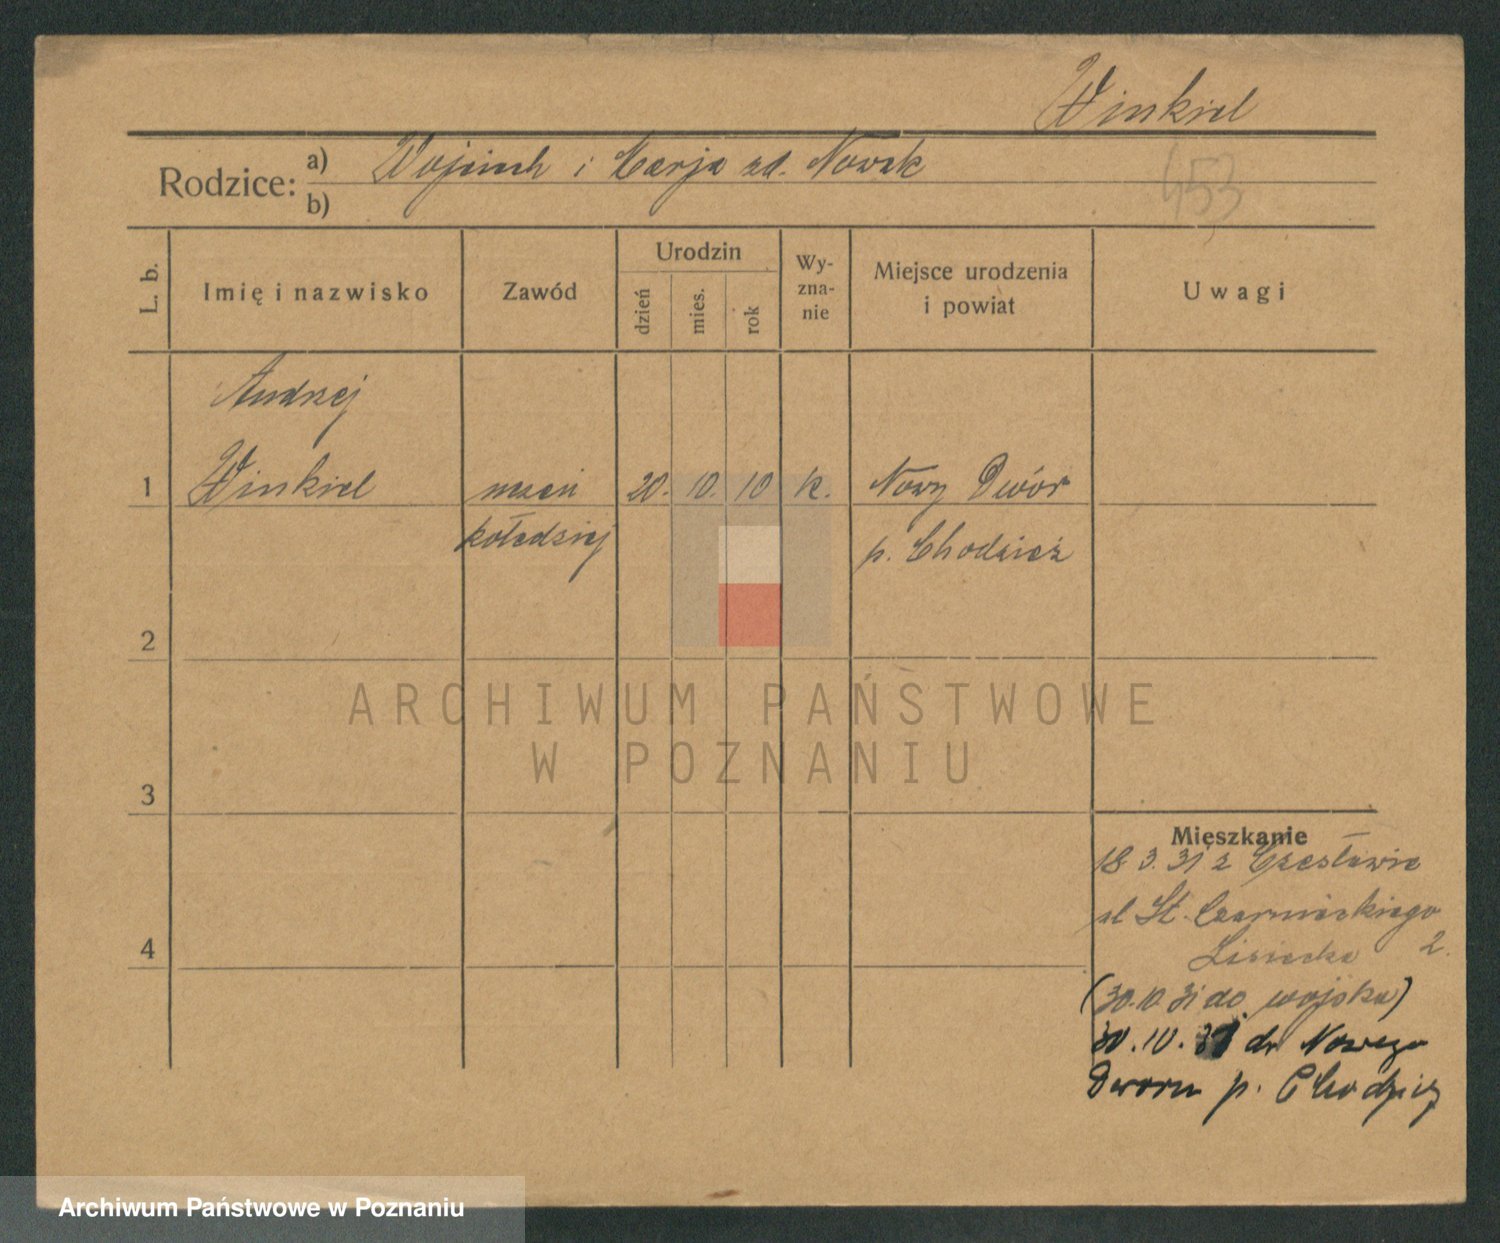 Winkiel
Rodzice: a) Wojciech i Marja zd. Nowak
b)
453
L. b.
Imię i nazwisko
Zawód
Urodzin
dzień
mies.
rok
Wy-
zna-
nie
Miejsce urodzenia
i powiat
Uwagi
Andrzej
1 Winkiel uczeń 20. 10. 10 k. Nowy Dwór
kołodziej p. Chodzież
2
ARCHIWUM PAŃSTWOWE
W POZNANIU
3
Mieszkanie
18.3.31 z
ul St. Czarnieckiego
4
Lisiecka 2.
(30.10.31 do wojska)
30.10.31 do Nowego
Dworu p. Chodzież
Archiwum Państwowe w Poznaniu